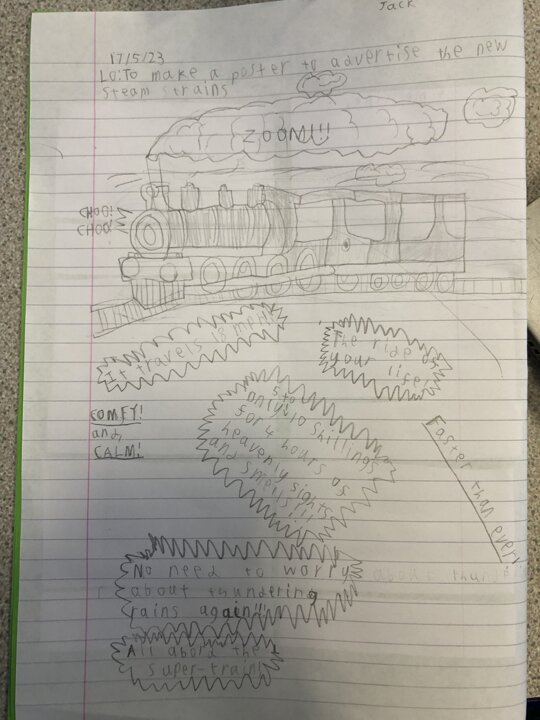 Jack
17/5/23
LO:To make a poster to advertise the new
steam trains
ZOOM!!!
CHOO!
CHOO!
It travels 15 mph!
The ride of
your life!
COMFY!
and
CALM!
5 to
only 10 shillings
for 4 hours of
heavenly sights
and smells!!!
Faster than ever!
No need to worry
about thundering
rains again!!!
All abord the
super-train!